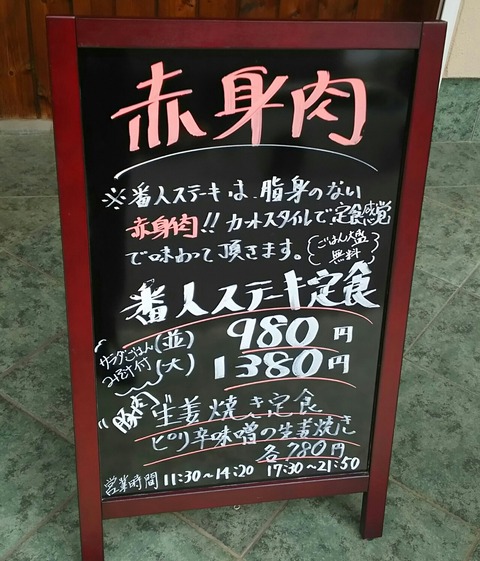 赤身肉
※番人ステーキは、脂身のない
赤身肉!! カットスタイルで定食感覚
で味わって頂きます。
ごはん大盛
無料
番人ステーキ定食
サラダ・ごはん
みそ汁付
(並) 980円
(大) 1380円
"豚肉"
生姜焼き定食
ピリ辛味噌の生姜焼き
各780円
営業時間 11:30~14:20 17:30~21:50